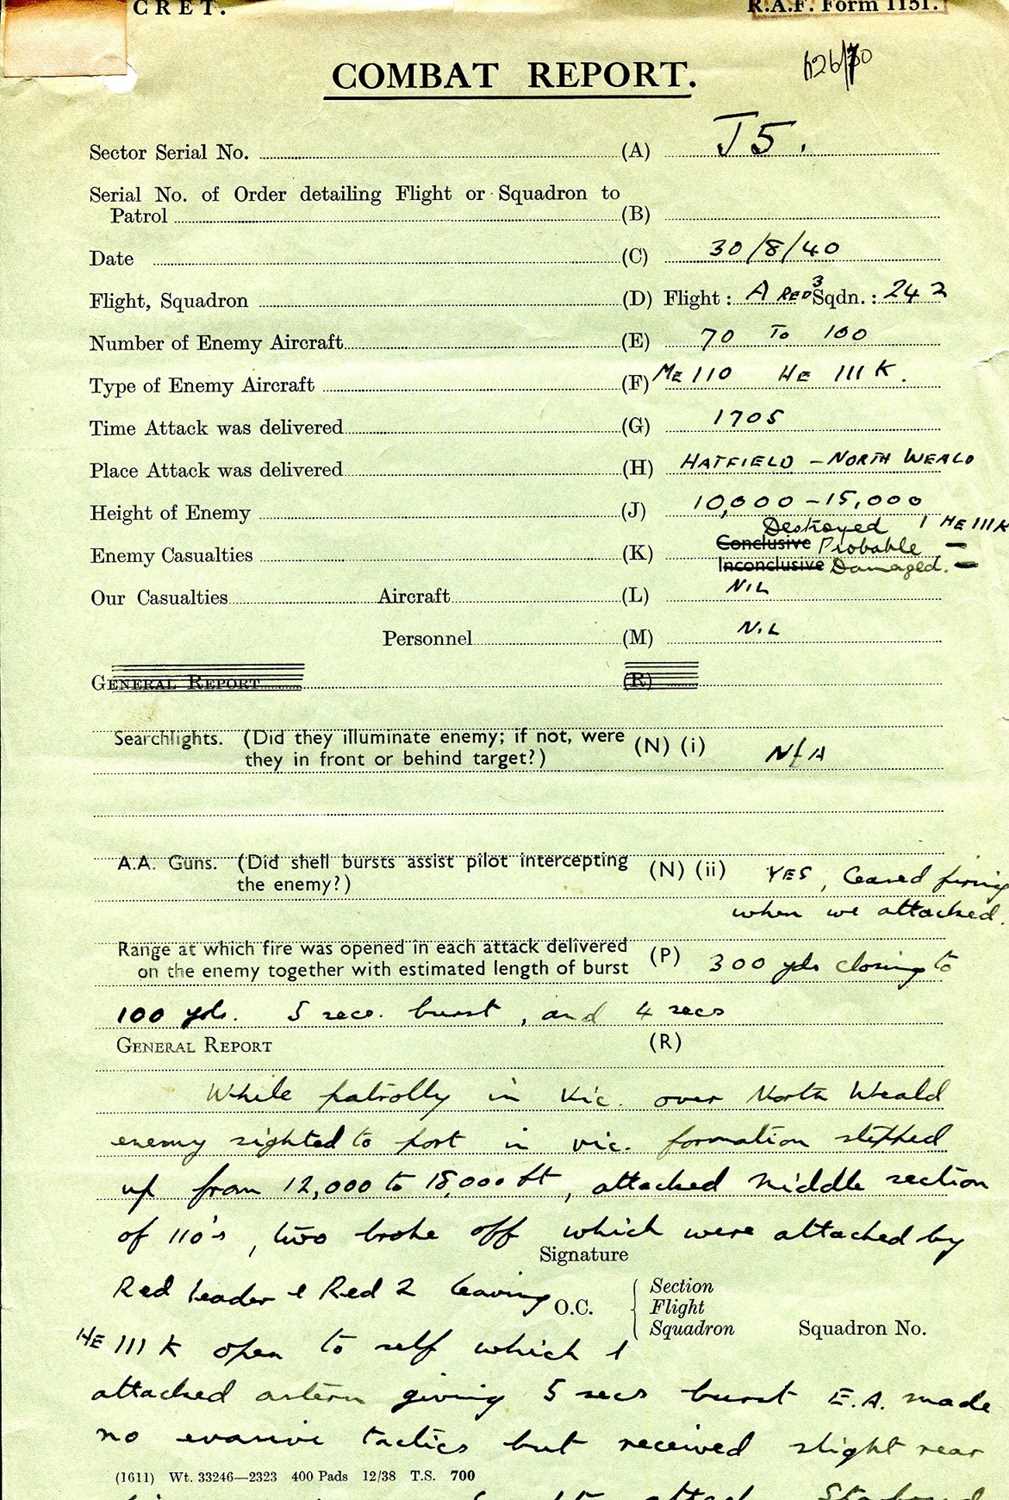 CRET.
R.A.F. Form 1151.
COMBAT REPORT.
Sector Serial No. (A) J5.
Serial No. of Order detailing Flight or Squadron to
Patrol (B)
Date (C) 30/8/40
Flight, Squadron (D) Flight : A RED 3 Sqdn. : 242
Number of Enemy Aircraft (E) 70 To 100
Type of Enemy Aircraft (F) ME 110 HE 111 K.
Time Attack was delivered (G) 1705
Place Attack was delivered (H) HATFIELD - NORTH WEALD
Height of Enemy (J) 10,000 - 15,000
Destroyed 1 HE 111K
Enemy Casualties (K) Conclusive Probable -
Inconclusive Damaged. -
Our Casualties Aircraft (L) NIL
Personnel (M) NIL
GENERAL REPORT (R)
Searchlights. (Did they illuminate enemy; if not, were (N) (i) N/A
they in front or behind target?)
A.A. Guns. (Did shell bursts assist pilot intercepting (N) (ii) YES, Ceased firing
the enemy?) when we attacked.
Range at which fire was opened in each attack delivered
on the enemy together with estimated length of burst (P) 300 yds closing to
100 yds. 5 secs. burst, and 4 secs
GENERAL REPORT (R)
While patrolly in Vic. over North Weald
enemy sighted to port in vic. formation stepped
up from 12,000 to 18,000 ft, attacked middle section
of 110's, two broke off which were attached by
Signature
Red Leader & Red 2 leaving O.C. Section
Flight
Squadron Squadron No.
HE 111 K open to self which I
attacked astern giving 5 secs burst E.A. made
no evasive tactics but received slight rear
(1611) Wt. 33246—2323 400 Pads 12/38 T.S. 700
attack Starboard